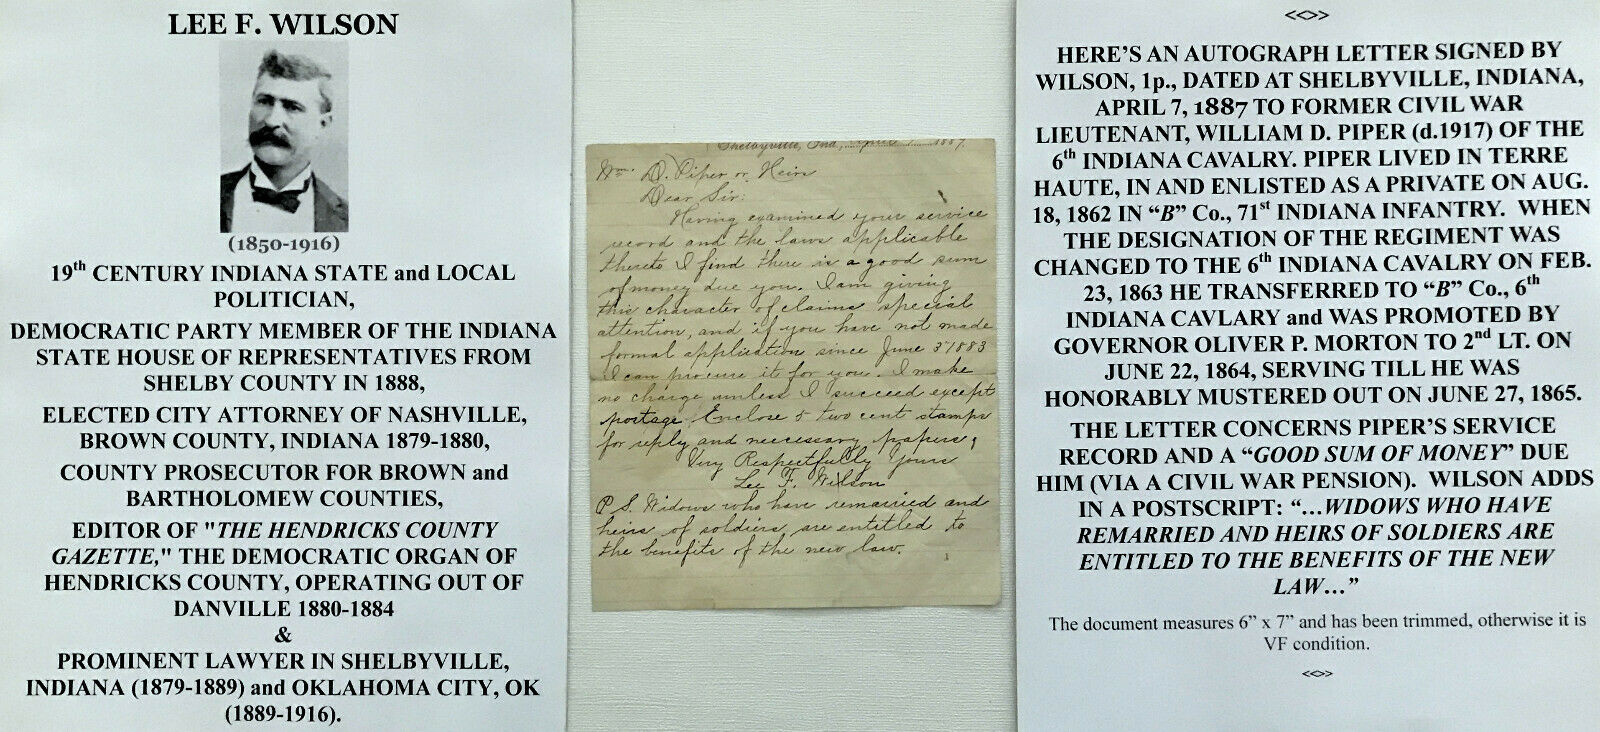 LEE F. WILSON
(1850-1916)
19th CENTURY INDIANA STATE and LOCAL
POLITICIAN,
DEMOCRATIC PARTY MEMBER OF THE INDIANA
STATE HOUSE OF REPRESENTATIVES FROM
SHELBY COUNTY IN 1888,
ELECTED CITY ATTORNEY OF NASHVILLE,
BROWN COUNTY, INDIANA 1879-1880,
COUNTY PROSECUTOR FOR BROWN and
BARTHOLOMEW COUNTIES,
EDITOR OF "THE HENDRICKS COUNTY
GAZETTE," THE DEMOCRATIC ORGAN OF
HENDRICKS COUNTY, OPERATING OUT OF
DANVILLE 1880-1884
&
PROMINENT LAWYER IN SHELBYVILLE,
INDIANA (1879-1889) and OKLAHOMA CITY, OK
(1889-1916).
Shelbyville, Ind., April 1887.
Wm. D. Piper or Heirs
Dear Sir:
Having examined your service
record and the laws applicable
thereto I find there is a good sum
of money due you. I am giving
this character of claims special
attention, and if you have not made
formal application since June 3" 1883
I can procure it for you. I make
no charge unless I succeed except
postage. Enclose 5 two cent stamps
for reply and neccessary papers,
Very Respectfully Yours
Lee F. Wilson
P.S. Widows who have remarried and
heirs of soldiers are entitled to
the benefits of the new law.
<<>>
HERE'S AN AUTOGRAPH LETTER SIGNED BY
WILSON, 1p., DATED AT SHELBYVILLE, INDIANA,
APRIL 7, 1887 TO FORMER CIVIL WAR
LIEUTENANT, WILLIAM D. PIPER (d.1917) OF THE
6th INDIANA CAVALRY. PIPER LIVED IN TERRE
HAUTE, IN AND ENLISTED AS A PRIVATE ON AUG.
18, 1862 IN “B” Co., 71st INDIANA INFANTRY. WHEN
THE DESIGNATION OF THE REGIMENT WAS
CHANGED TO THE 6th INDIANA CAVALRY ON FEB.
23, 1863 HE TRANSFERRED TO “B” Co., 6th
INDIANA CAVLARY and WAS PROMOTED BY
GOVERNOR OLIVER P. MORTON TO 2nd LT. ON
JUNE 22, 1864, SERVING TILL HE WAS
HONORABLY MUSTERED OUT ON JUNE 27, 1865.
THE LETTER CONCERNS PIPER'S SERVICE
RECORD AND A “GOOD SUM OF MONEY” DUE
HIM (VIA A CIVIL WAR PENSION). WILSON ADDS
IN A POSTSCRIPT: “…WIDOWS WHO HAVE
REMARRIED AND HEIRS OF SOLDIERS ARE
ENTITLED TO THE BENEFITS OF THE NEW
LAW…”
The document measures 6” x 7” and has been trimmed, otherwise it is
VF condition.
<<>>